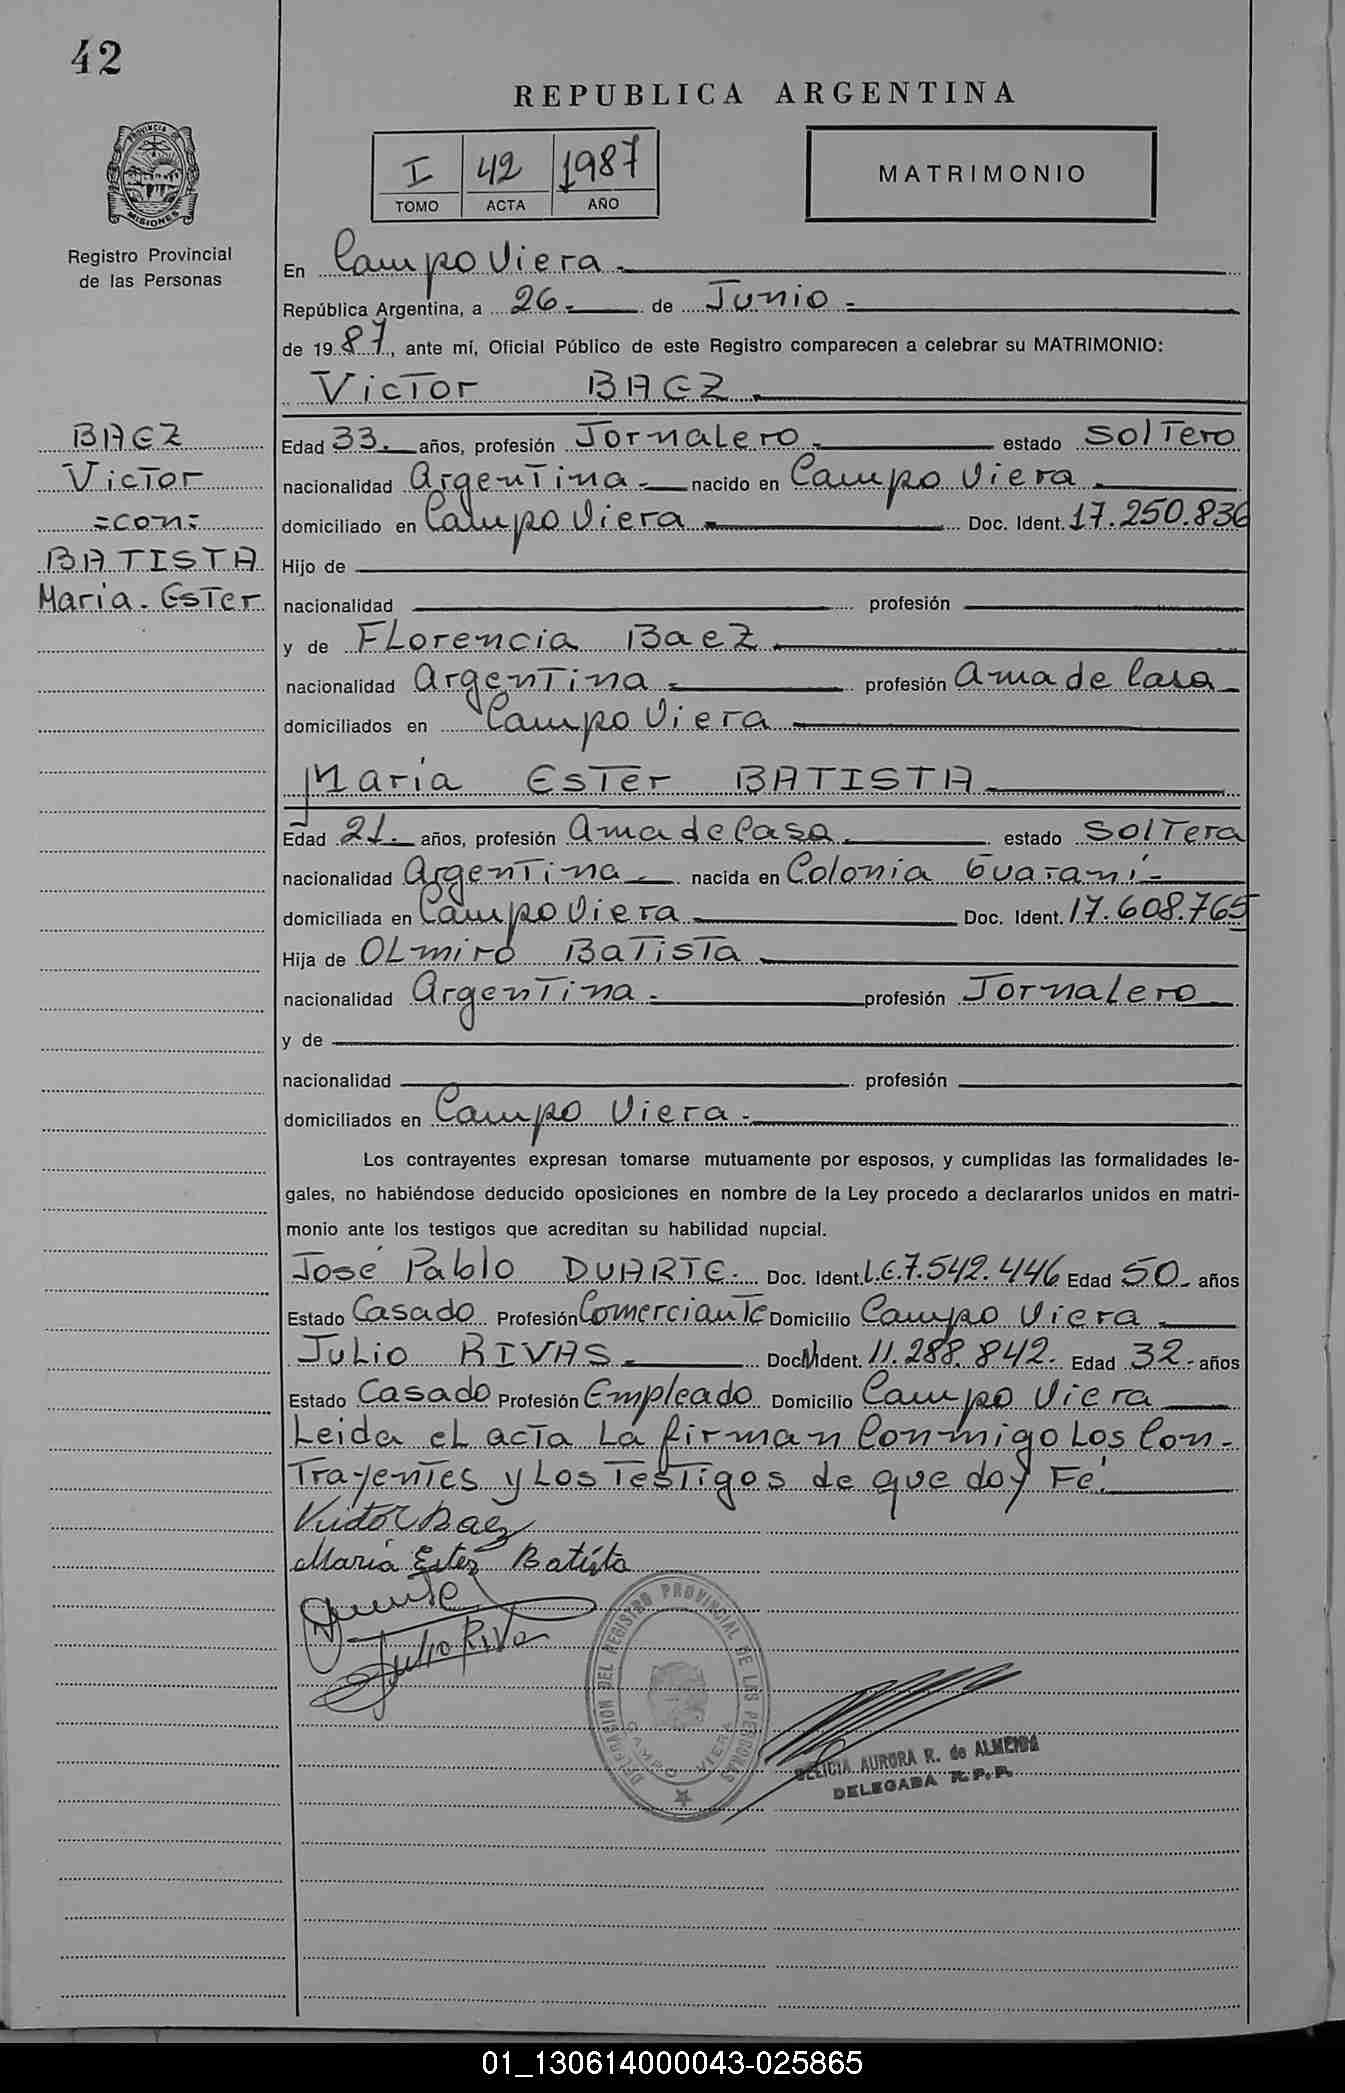 42
REPUBLICA ARGENTINA
I 42 1987
TOMO ACTA AÑO
MATRIMONIO
PROVINCIA DE MISIONES
Registro Provincial
de las Personas
En Campo Viera.
República Argentina, a 26 de Junio
de 1987, ante mí, Oficial Público de este Registro comparecen a celebrar su MATRIMONIO:
Victor BAEZ
BAEZ
Victor
=con=
BATISTA
Maria-Ester
Edad 33. años, profesión Jornalero estado Soltero
nacionalidad Argentina nacido en Campo Viera
domiciliado en Campo Viera Doc. Ident. 17.250.836
Hijo de
nacionalidad profesión
y de Florencia Baez
nacionalidad Argentina profesión Ama de Casa
domiciliados en Campo Viera
María Ester BATISTA
Edad 21. años, profesión Ama de Casa estado Soltera
nacionalidad Argentina nacida en Colonia Guaraní
domiciliada en Campo Viera Doc. Ident. 17.608.765
Hija de Olmiro Batista
nacionalidad Argentina profesión Jornalero
y de
nacionalidad profesión
domiciliados en Campo Viera
Los contrayentes expresan tomarse mutuamente por esposos, y cumplidas las formalidades le-
gales, no habiéndose deducido oposiciones en nombre de la Ley procedo a declararlos unidos en matri-
monio ante los testigos que acreditan su habilidad nupcial.
José Pablo DUARTE Doc. Ident. L.E.7.542.446 Edad 50 años
Estado Casado Profesión Comerciante Domicilio Campo Viera
Julio RIVAS Doc. Ident. 11.288.842. Edad 32 años
Estado Casado Profesión Empleado Domicilio Campo Viera
Leida el acta la firman Conmigo Los Con-
Trayentes y Los Testigos de que doy Fé.
Victor Baez
María Ester Batista
Duarte
Julio Riva
DELEGACION DEL REGISTRO PROVINCIAL DE LAS PERSONAS
CAMPO VIERA
AURORA R. de ALMEIDA
DELEGADA R.P.P.
01_130614000043-025865